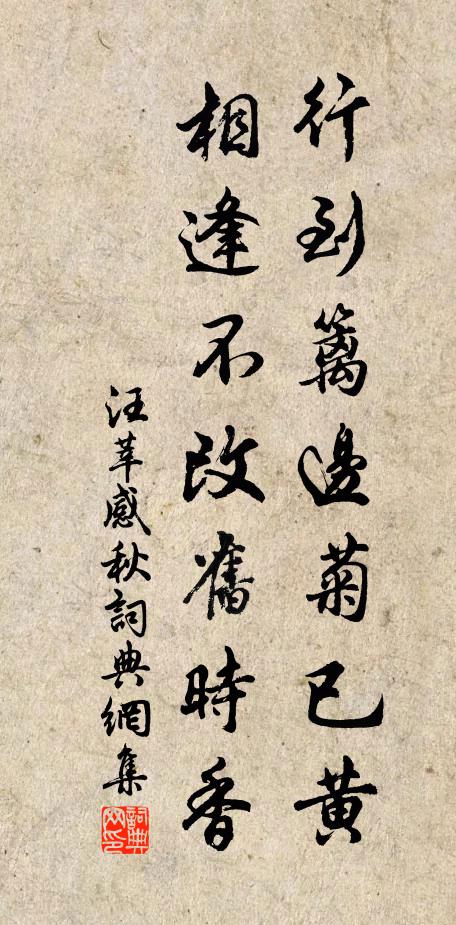 行到籬邊菊已黃
相逢不改舊時香
汪莘感秋詞典網集
詞典網印